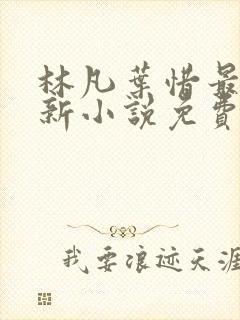 林凡葉惜最
新小說免費
我要浪迹天涯